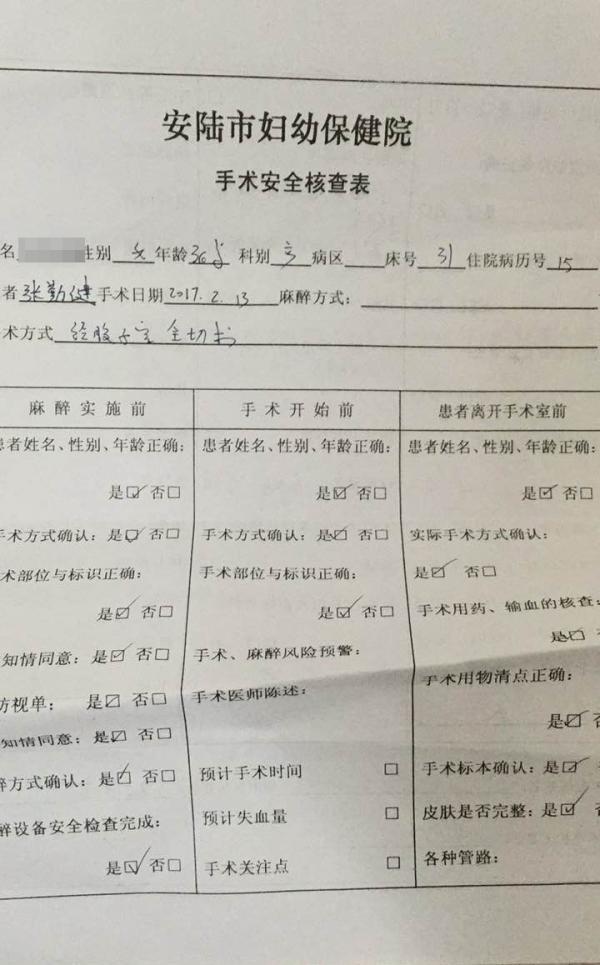 安陆市妇幼保健院
手术安全核查表
名 性别 女 年龄 36岁 科别 病区 床号 31 住院病历号 15
者 张勤健 手术日期 2017.2.13 麻醉方式：
术方式 经腹子宫全切术
麻醉实施前 手术开始前 患者离开手术室前
患者姓名、性别、年龄正确： 患者姓名、性别、年龄正确： 患者姓名、性别、年龄正确：
是☑ 否□ 是☑ 否□ 是☑ 否□
手术方式确认：是☑ 否□ 手术方式确认：是☑ 否□ 实际手术方式确认：
术部位与标识正确： 手术部位与标识正确： 是☑ 否□
是☑ 否□ 是☑ 否□ 手术用药、输血的核查：
是☑ 否□
知情同意：是☑ 否□ 手术、麻醉风险预警： 手术用物清点正确：
访视单：是☑ 否□ 手术医师陈述： 是☑ 否□
知情同意：是☑ 否□
醉方式确认：是☑ 否□ 预计手术时间 □ 手术标本确认：是☑
醉设备安全检查完成： 预计失血量 □ 皮肤是否完整：是☑ 否
是☑ 否□ 手术关注点 □ 各种管路：